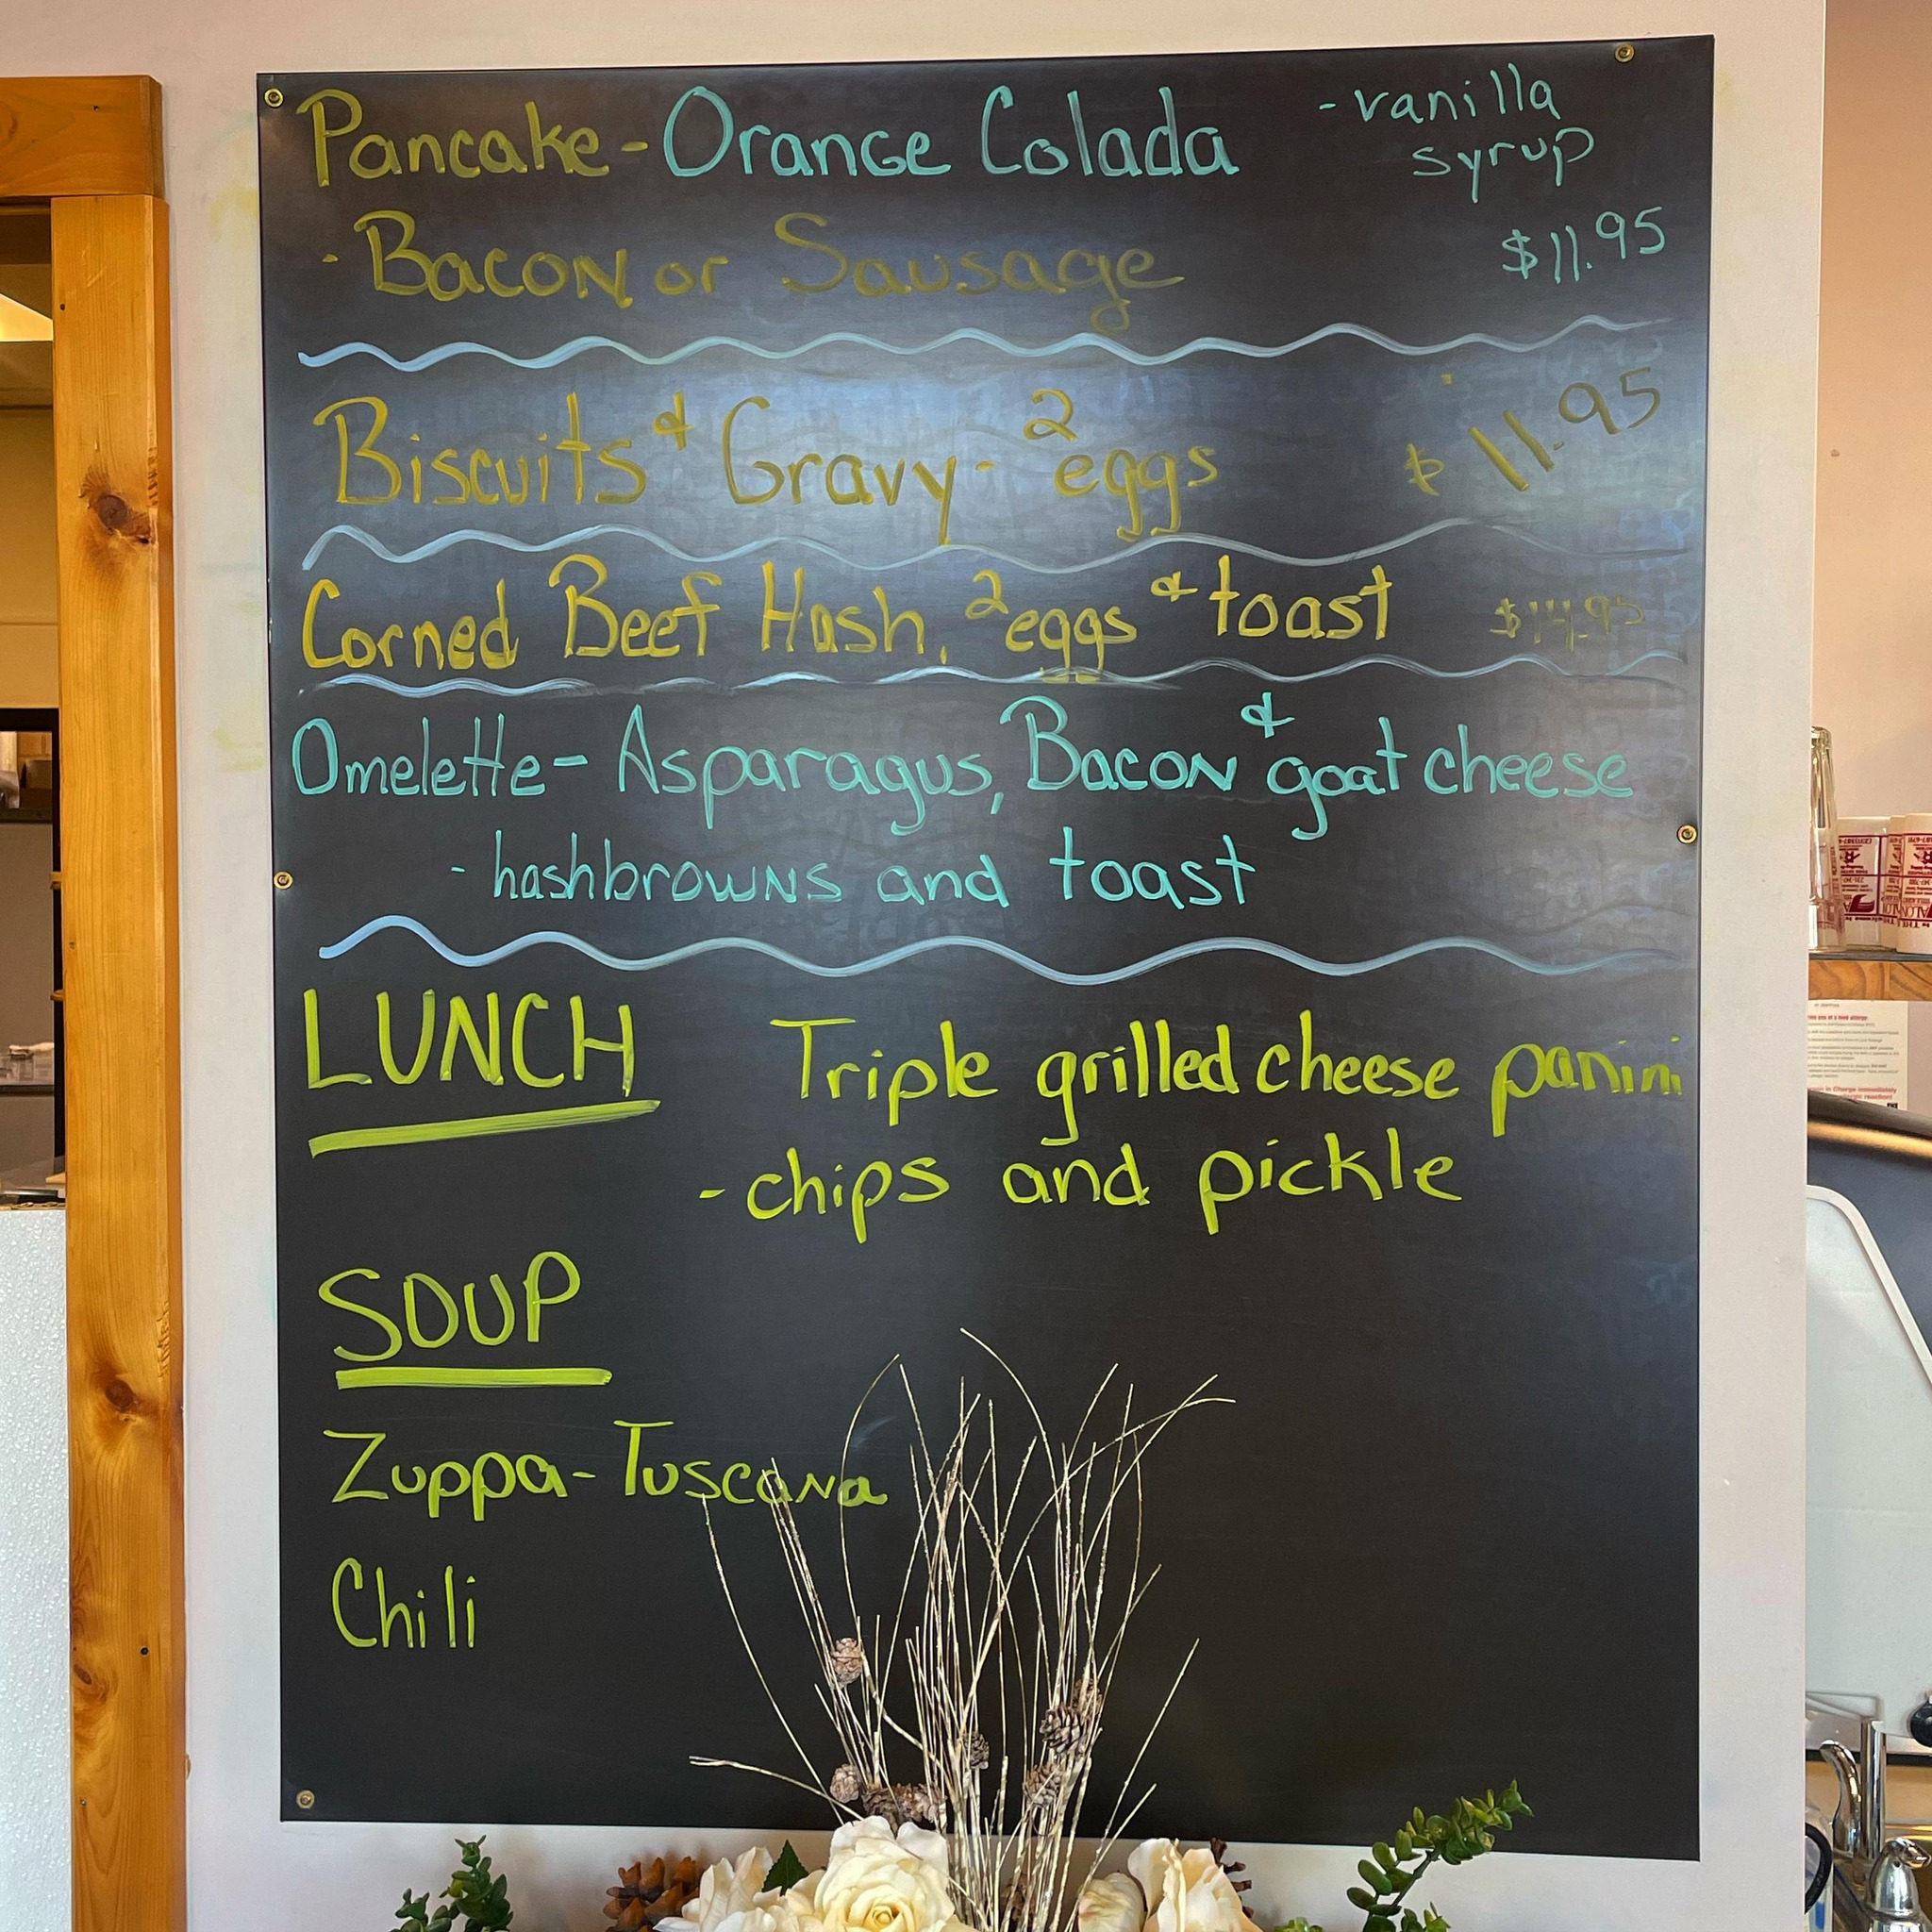 Pancake - Orange Colada - vanilla syrup
· Bacon or Sausage $11.95
Biscuits & Gravy - 2 eggs $11.95
Corned Beef Hash, 2 eggs & toast $14.95
Omelette - Asparagus, Bacon & goat cheese
- hashbrowns and toast
LUNCH Triple grilled cheese panini
- chips and pickle
SOUP
Zuppa - Tuscana
Chili